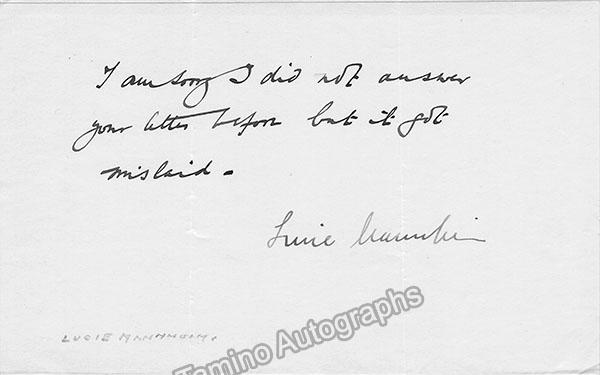 I am sorry I did not answer
your letter before but it got
mislaid.
Lucie Mannheim
LUCIE MANNHEIM.
Tamino Autographs